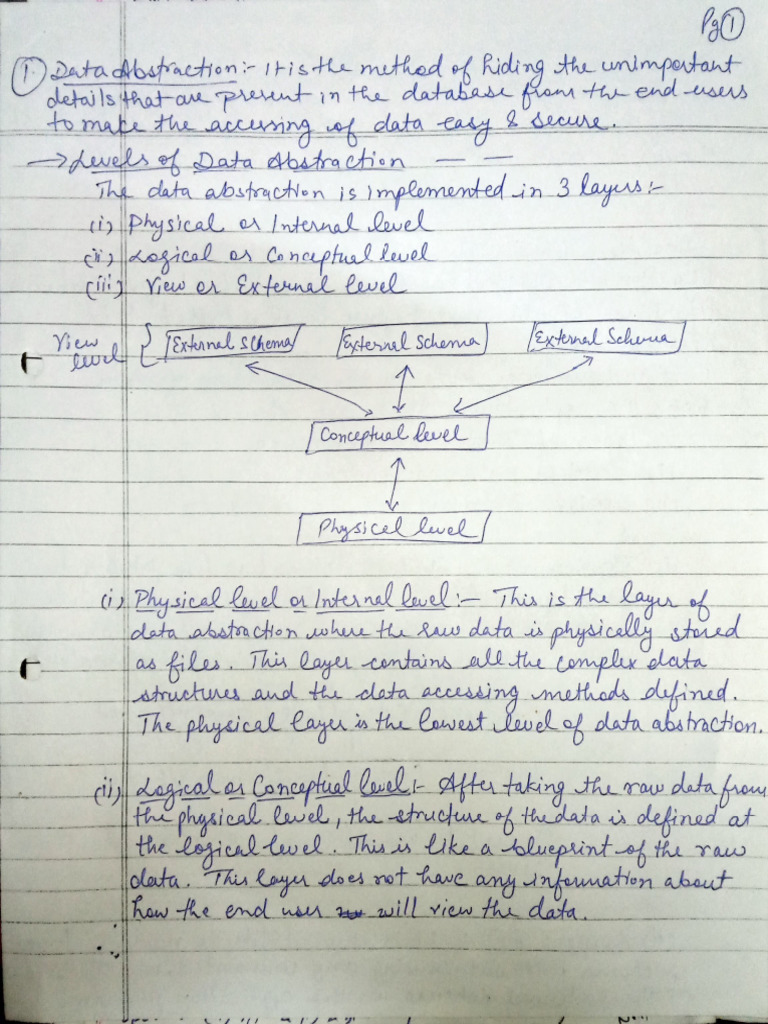 Pg 1
1. Data Abstraction:- It is the method of hiding the unimportant
details that are present in the database from the end users
to make the accessing of data easy & secure.
→ Levels of Data Abstraction — —
The data abstraction is implemented in 3 layers:-
(i) Physical or Internal level
(ii) Logical or Conceptual level
(iii) View or External level
View level { External Schema External Schema External Schema
Conceptual level
Physical level
(i) Physical level or Internal level:- This is the layer of
data abstraction where the raw data is physically stored
as files. This layer contains all the complex data
structures and the data accessing methods defined.
The physical layer is the lowest level of data abstraction.
(ii) Logical or Conceptual level:- After taking the raw data from
the physical level, the structure of the data is defined at
the logical level. This is like a blueprint of the raw
data. This layer does not have any information about
how the end user will view the data.